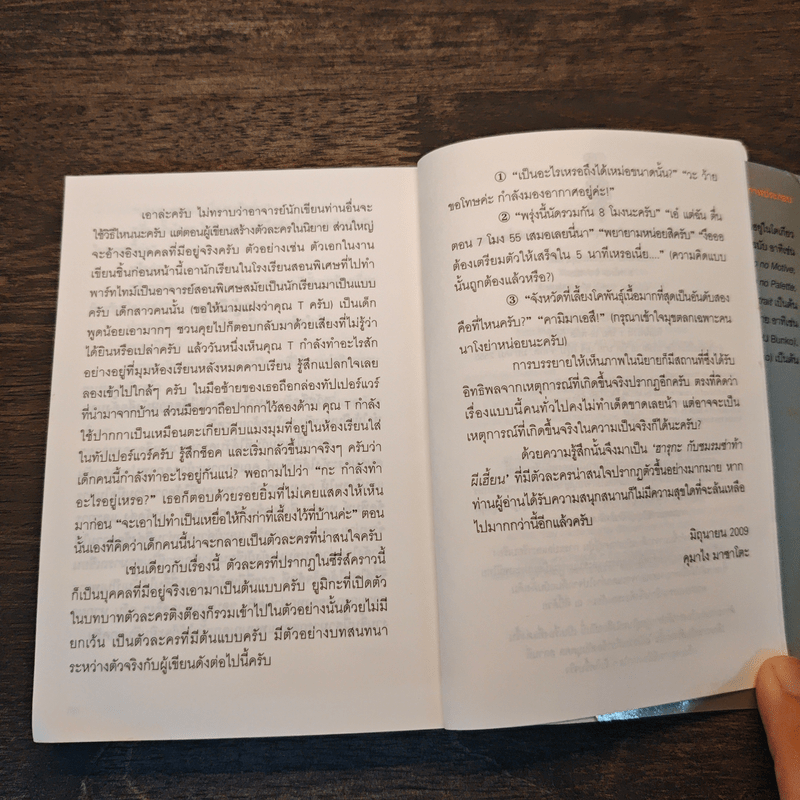 เอาล่ะครับ ไม่ทราบว่าอาจารย์นักเขียนท่านอื่นจะ
ใช้วิธีไหนนะครับ แต่ตอนผู้เขียนสร้างตัวละครในนิยาย ส่วนใหญ่
จะอ้างอิงบุคคลที่มีอยู่จริงครับ ตัวอย่างเช่น ตัวเอกในงาน
เขียนชิ้นก่อนหน้านี้เอานักเรียนในโรงเรียนสอนพิเศษที่ไปทำ
พาร์ทไทม์เป็นอาจารย์สอนพิเศษสมัยเป็นนักเรียนมาเป็นแบบ
ครับ เด็กสาวคนนั้น (ขอให้นามแฝงว่าคุณ T ครับ) เป็นเด็ก
พูดน้อยเอามากๆ ชวนคุยไปก็ตอบกลับมาด้วยเสียงที่ไม่รู้ว่า
ได้ยินหรือเปล่าครับ แล้ววันหนึ่งเห็นคุณ T กำลังทำอะไรสัก
อย่างอยู่ที่มุมห้องเรียนหลังหมดคาบเรียน รู้สึกแปลกใจเลย
ลองเข้าไปใกล้ๆ ครับ ในมือซ้ายของเธอถือกล่องทัปเปอร์แวร์
ที่นำมาจากบ้าน ส่วนมือขวาถือปากกาไว้สองด้าม คุณ T กำลัง
ใช้ปากกาเป็นเหมือนตะเกียบคีบแมงมุมที่อยู่ในห้องเรียนใส่
ในทัปเปอร์แวร์ครับ รู้สึกช็อค และเริ่มกลัวขึ้นมาจริงๆ ครับว่า
เด็กคนนี้กำลังทำอะไรอยู่กันแน่? พอถามไปว่า "กะ กำลังทำ
อะไรอยู่เหรอ?" เธอก็ตอบด้วยรอยยิ้มที่ไม่เคยแสดงให้เห็น
มาก่อน "จะเอาไปทำเป็นเหยื่อให้กิ้งก่าที่เลี้ยงไว้ที่บ้านค่ะ" ตอน
นั้นเองที่คิดว่าเด็กคนนี้น่าจะกลายเป็นตัวละครที่น่าสนใจครับ
เช่นเดียวกับเรื่องนี้ ตัวละครที่ปรากฏในซีรี่ส์คราวนี้
ก็เป็นบุคคลที่มีอยู่จริงเอามาเป็นต้นแบบครับ ยูมิกะที่เปิดตัว
ในบทบาทตัวละครติงต๊องก็รวมเข้าไปในตัวอย่างนั้นด้วยไม่มี
ยกเว้น เป็นตัวละครที่มีต้นแบบครับ มีตัวอย่างบทสนทนา
ระหว่างตัวจริงกับผู้เขียนดังต่อไปนี้ครับ
① "เป็นอะไรเหรอถึงได้เหม่อขนาดนั้น?" "วะ ว้าย
ขอโทษค่ะ กำลังมองอากาศอยู่ค่ะ!"
② "พรุ่งนี้นัดรวมกัน 8 โมงนะครับ" "เอ๋ แต่ฉัน ตื่น
ตอน 7 โมง 55 เสมอเลยนี่นา" "พยายามหน่อยสิครับ" "งืออออ
ต้องเตรียมตัวให้เสร็จใน 5 นาทีเหรอเนี่ย...." (ความคิดแบบ
นั้นถูกต้องแล้วหรือ?)
③ "จังหวัดที่เลี้ยงโคพันธุ์เนื้อมากที่สุดเป็นอันดับสอง
คือที่ไหนครับ?" "คามิมาเอสึ!" (กรุณาเข้าใจมุขตลกเฉพาะคน
นาโงย่าหน่อยนะครับ)
การบรรยายให้เห็นภาพในนิยายก็มีสถานที่ซึ่งได้รับ
อิทธิพลจากเหตุการณ์ที่เกิดขึ้นจริงปรากฏอีกครับ ตรงที่คิดว่า
เรื่องแบบนี้คนทั่วไปคงไม่ทำเด็ดขาดเลยน้า แต่อาจจะเป็น
เหตุการณ์ที่เกิดขึ้นจริงในความเป็นจริงก็ได้นะครับ?
ด้วยความรู้สึกนั้นจึงมาเป็น 'ฮารุกะ กับชมรมซ่าท้า
ผีเฮี้ยน' ที่มีตัวละครน่าสนใจปรากฏตัวขึ้นอย่างมากมาย หาก
ท่านผู้อ่านได้รับความสนุกสนานก็ไม่มีความสุขใดที่จะล้นเหลือ
ไปมากกว่านี้อีกแล้วครับ
มิถุนายน 2009
คุมาไง มาซาโตะ
no Motive,
no Palette,
Bunko)